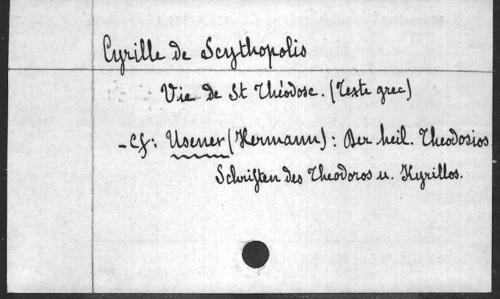 Cyrille de Scythopolis
Vie de St Théodose. (Texte grec)
- Cf: Usener (Hermann) : Der heil. Theodosios
Schriften des Theodoros u. Kyrillos.